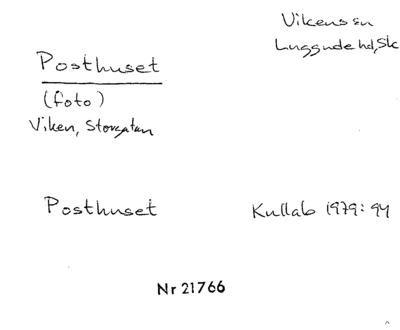 Vikens sn
Luggude hd, Sk
Posthuset
(foto)
Viken, Storgatan
Posthuset
Kullab 1979: 94
Nr 21766